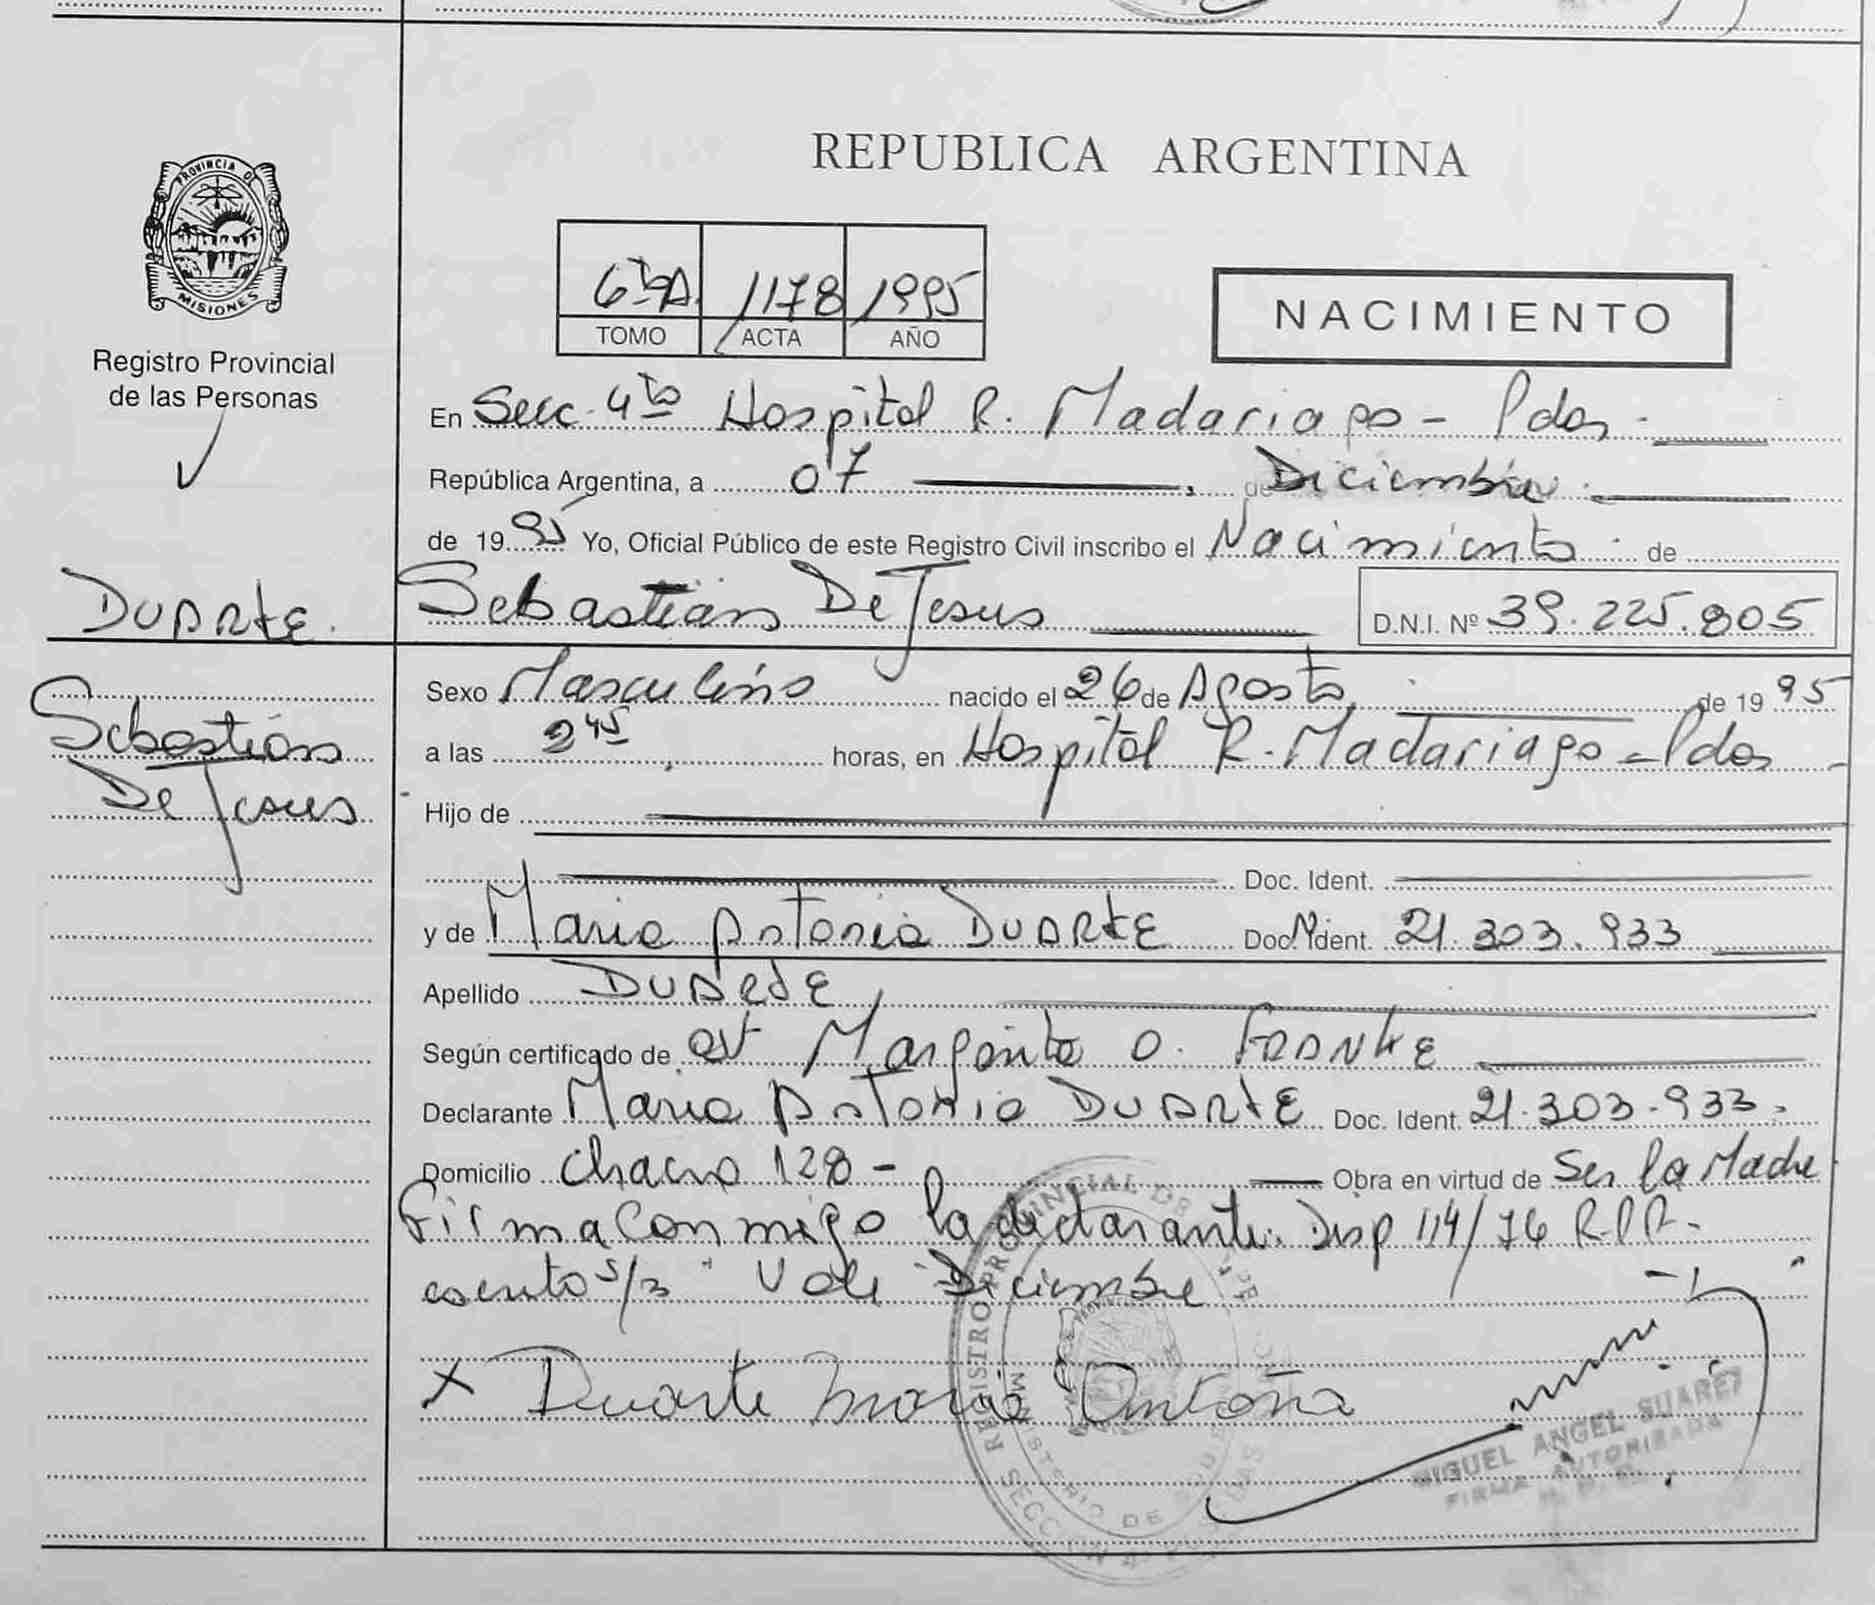 PROVINCIA D
MISIONES
Registro Provincial
de las Personas
REPUBLICA ARGENTINA
1178 1995
TOMO ACTA AÑO
NACIMIENTO
En Secc. 4ta Hospital R. Madariaga - Pdas.
República Argentina, a 07 de Diciembre
de 1995 Yo, Oficial Público de este Registro Civil inscribo el Nacimiento de
DUARTE. Sebastián De Jesus D.N.I. Nº 39.225.805
Sexo Masculino nacido el 26 de Agosto de 1995
Sebastián
a las 2 45 horas, en Hospital R. Madariaga - Pdas
De Jesus
Hijo de
Doc. Ident.
y de Maria Antonia DUARTE Doc. Ident. 21.303.933
Apellido DUARTE
Según certificado de Margarita O. FRANKE
Declarante Maria Antonia DUARTE Doc. Ident. 21.303.933
Domicilio Chacra 128 - Obra en virtud de Ser la Madre
Firma conmigo la declarante. Disp 114/76 R.P.P.
Vale Diciembre
x Duarte Maria Antoña
REGISTRO PROVINCIAL DE
MINISTERIO DE
SECCION 4ª
MIGUEL ANGEL SUAREZ
FIRMA AUTORIZADA